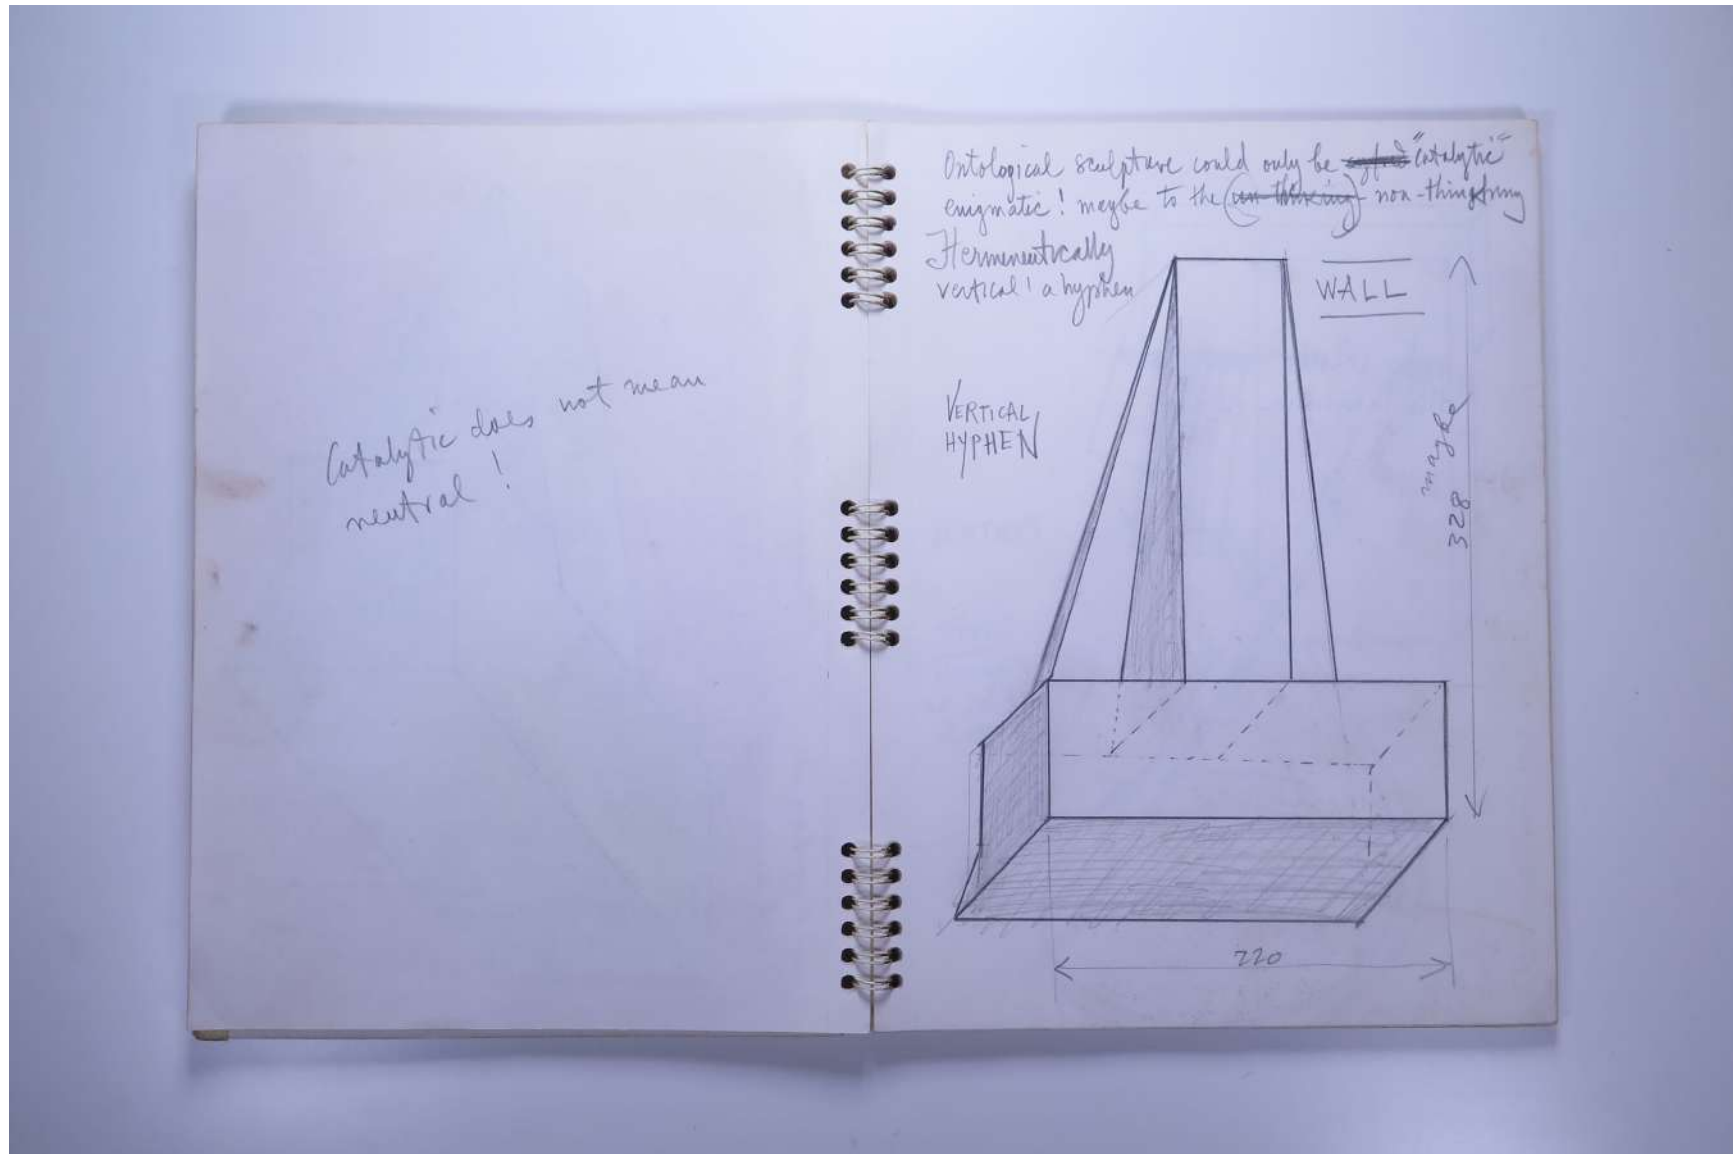 Catalytic does not mean
neutral !
Ontological sculpture could only be "catalytic"
enigmatic ! maybe to the (un-thinking) non-thing
Hermeneutically
vertical ! a hyphen
WALL
VERTICAL
HYPHEN
328 maybe
220